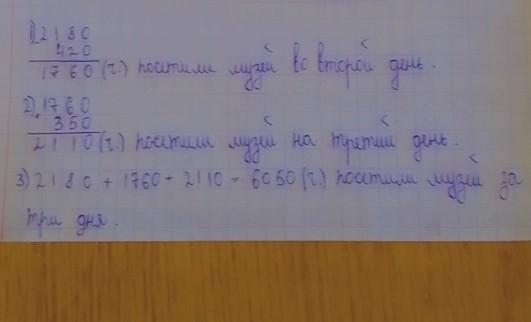 1) 2180
420
1760 (ч.) посетили музей во второй день.
2) 1760
+ 350
2110 (ч.) посетили музей на третий день.
3) 2180 + 1760 + 2110 = 6050 (ч.) посетили музей за
три дня.